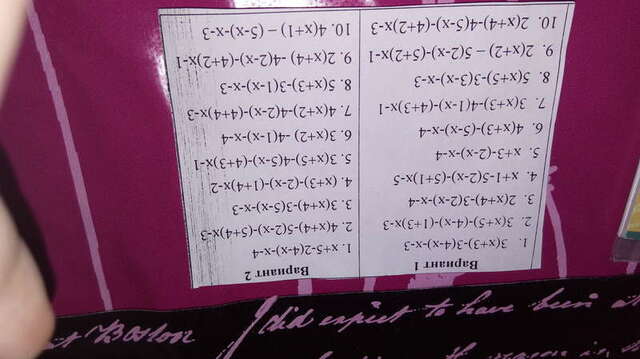 Вариант 1
1. 3(x+3)-3(4-x)-x-3
2. 3(x+5)-(4-x)-(1+3)x-3
3. 2(x+4)-3(2-x)-x-4
4. x+1-5(2-x)-(5+1)x-5
5. x+3-(2-x)-x-4
6. 4(x+3)-(5-x)-x-4
7. 3(x+3)-4(1-x)-(4+3)x-1
8. 5(x+5)-3(3-x)-x-3
9. 2(x+2) – 5(2-x)-(5+2)x-1
10. 2(x+4)-4(5-x)-(4+2)x-3
Вариант 2
1. x+5-2(4-x)-x-4
2. 4(x+4)-5(2-x)-(5+4)x-3
3. 3(x+4)-3(5-x)-x-3
4. (x+3)-(2-x)-(1+4)x-2
5. 3(x+5)-4(5-x)-(4+3)x-1
6. 3(x+2) -4(1-x)-x-4
7. 4(x+2)-4(2-x)-(4+4)x-3
8. 5(x+3)-3(1-x)-x-3
9. 2(x+4) -4(2-x)-(4+2)x-1
10. 4(x+1) – (5-x)-x-3